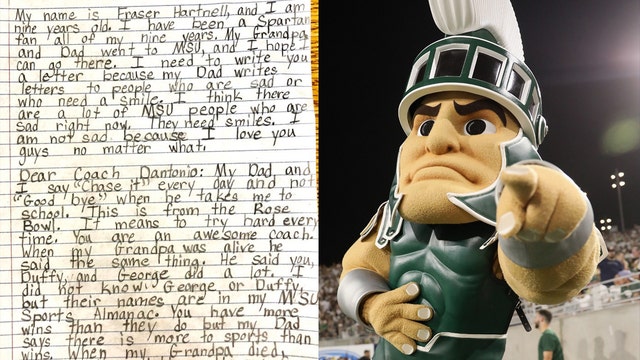 My name is Fraser Hartnell, and I am
nine years old. I have been a Spartan
fan all of my nine years. My Grandpa
and Dad went to MSU, and I hope I
can go there. I need to write you
a letter because my Dad writes
letters to people who are sad or
who need a smile. I think there
are a lot of MSU people who are
sad right now. They need smiles. I
am not sad because I love you
guys no matter what.
Dear Coach Dantonio: My Dad, and
I say "Chase it" every day and not
"Good bye" when he takes me to
school. This is from the Rose
Bowl. It means to try hard every
time. You are an awesome coach.
When my Grandpa was alive he
said the same thing. He said you,
Duffy, and George did a lot. I
did not know George or Duffy,
but their names are in my MSU
Sports Almanac. You have more
wins than they do but my Dad
says there is more to sports than
wins. When my Grandpa died,